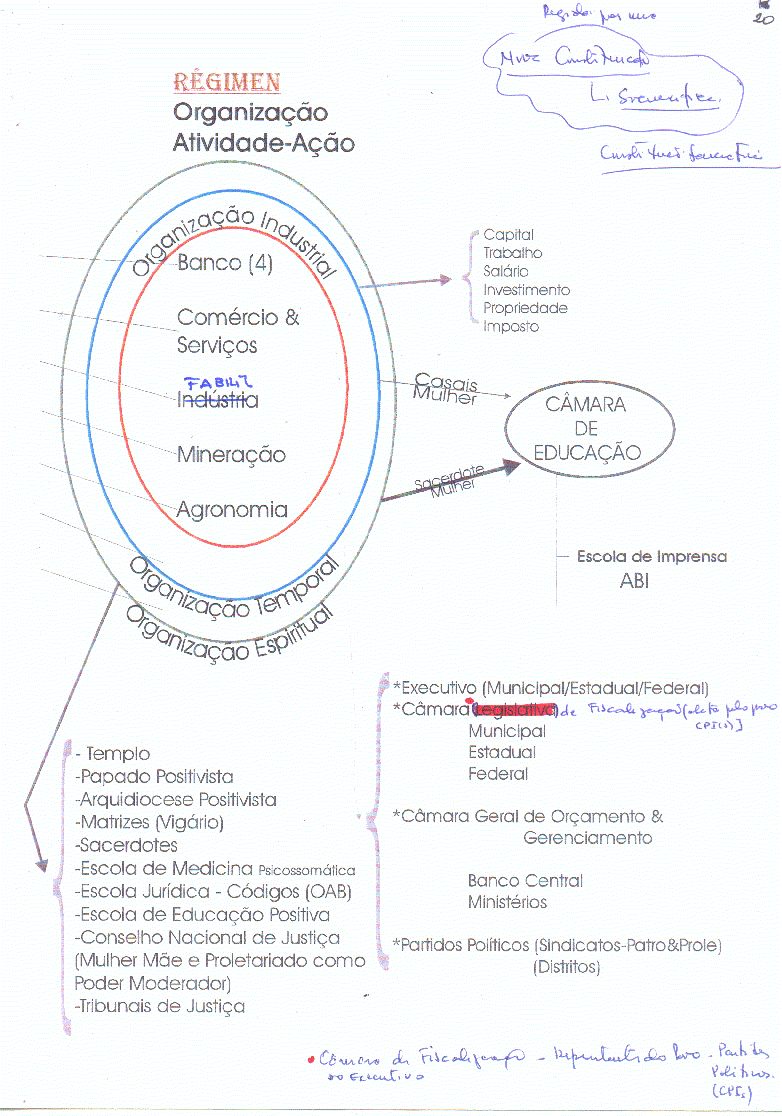 20
Regida por uma
Nova Constituição
RÉGIMEN
Organização
Atividade-Ação
Organização Industrial
Banco (4)
Comércio &
Serviços
FABRIL
Indústria
Mineração
Agronomia
Organização Temporal
Organização Espiritual
Capital
Trabalho
Salário
Investimento
Propriedade
Imposto
Casais
Mulher
Sacerdote
Mulher
CÂMARA
DE
EDUCAÇÃO
Escola de Imprensa
ABI
*Executivo (Municipal/Estadual/Federal)
*Câmara (Legislativa) de Fiscalização (eleita pelo povo
CPI(s)]
Municipal
Estadual
Federal
*Câmara Geral de Orçamento &
Gerenciamento
Banco Central
Ministérios
*Partidos Políticos (Sindicatos-Patro&Prole)
(Distritos)
- Templo
-Papado Positivista
-Arquidiocese Positivista
-Matrizes (Vigário)
-Sacerdotes
-Escola de Medicina Psicossomática
-Escola Jurídica - Códigos (OAB)
-Escola de Educação Positiva
-Conselho Nacional de Justiça
(Mulher Mãe e Proletariado como
Poder Moderador)
-Tribunais de Justiça
Câmara de Fiscalização - do Povo - Partidos
do Executivo
Políticos.
(CPIs)